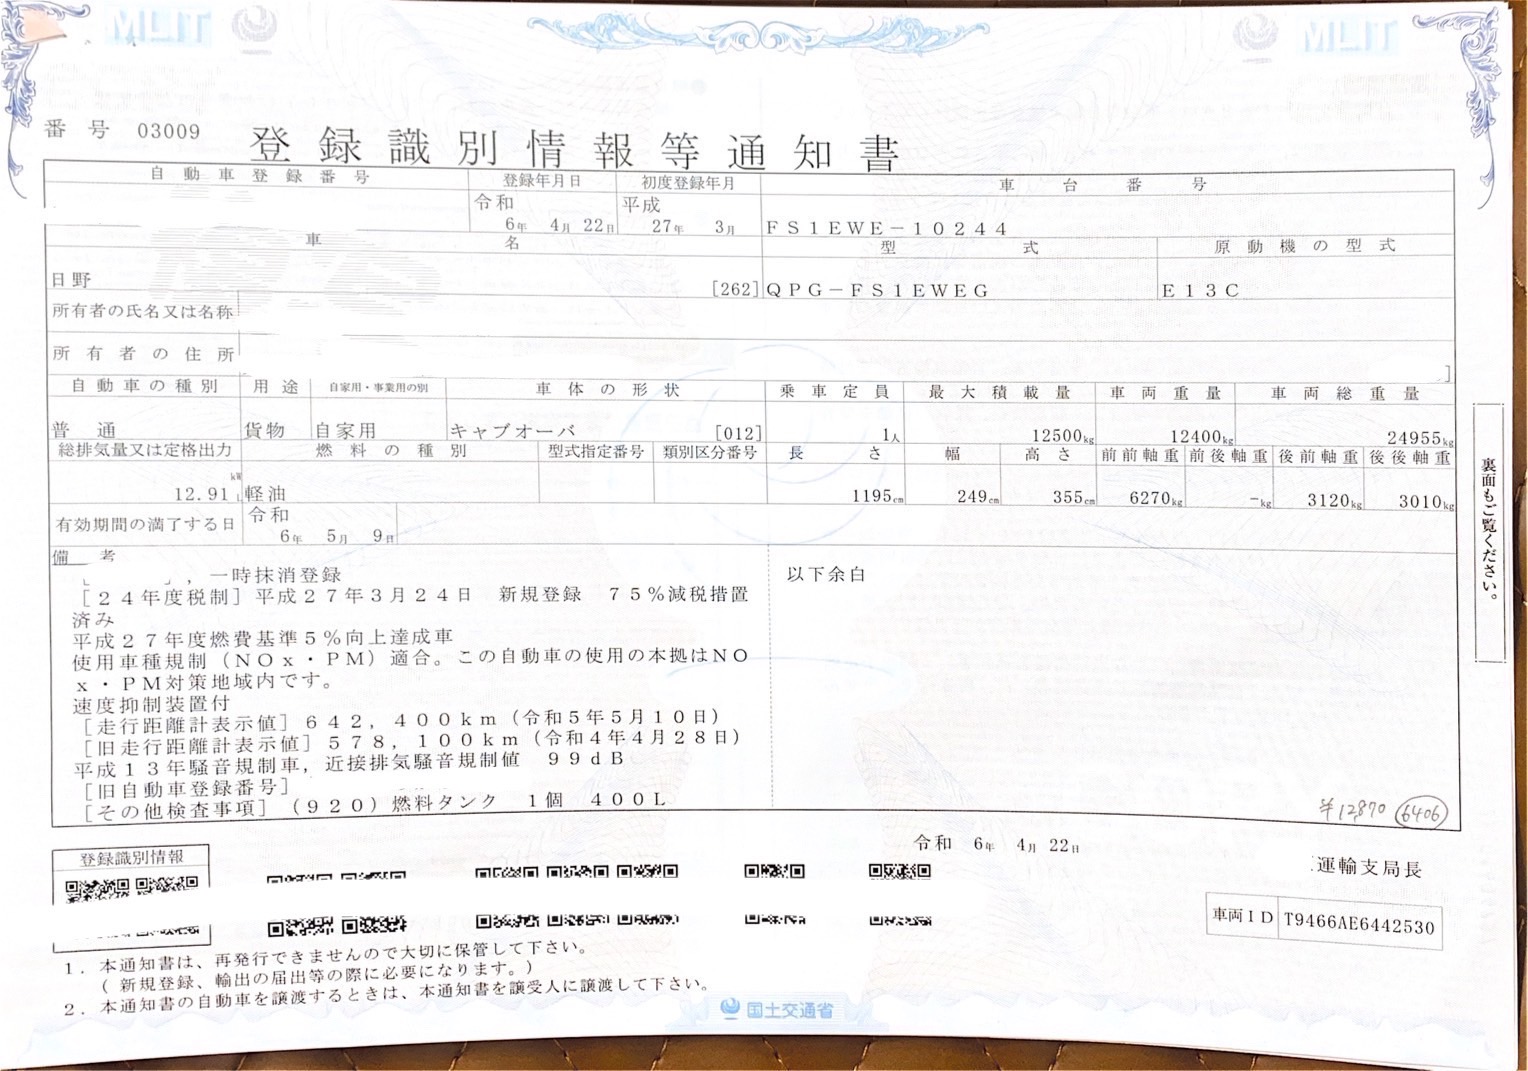 MLIT
MLIT
番号 03009
登録識別情報等通知書
自動車登録番号 登録年月日 初度登録年月 車台番号
令和 6年 4月 22日 平成 27年 3月 FS1EWE-10244
車名 型式 原動機の型式
日野 [262] QPG-FS1EWEG E13C
所有者の氏名又は名称
所有者の住所 ]
自動車の種別 用途 自家用・事業用の別 車体の形状 乗車定員 最大積載量 車両重量 車両総重量
普通 貨物 自家用 キャブオーバ [012] 1人 12500kg 12400kg 24955kg
総排気量又は定格出力 燃料の種別 型式指定番号 類別区分番号 長さ 幅 高さ 前前軸重 前後軸重 後前軸重 後後軸重
12.91 kW L 軽油 1195cm 249cm 355cm 6270kg -kg 3120kg 3010kg
有効期間の満了する日 令和 6年 5月 9日
備考
, 一時抹消登録 以下余白
[24年度税制] 平成27年3月24日 新規登録 75%減税措置
済み
平成27年度燃費基準5%向上達成車
使用車種規制(NOx・PM)適合。この自動車の使用の本拠はNO
x・PM対策地域内です。
速度抑制装置付
[走行距離計表示値] 642,400km(令和5年5月10日)
[旧走行距離計表示値] 578,100km(令和4年4月28日)
平成13年騒音規制車, 近接排気騒音規制値 99dB
[旧自動車登録番号]
[その他検査事項] (920)燃料タンク 1個 400L
¥12,870 6406
裏面もご覧ください。
令和 6年 4月 22日
運輸支局長
登録識別情報
車両ID T9466AE6442530
1. 本通知書は、再発行できませんので大切に保管して下さい。
(新規登録、輸出の届出等の際に必要になります。)
2. 本通知書の自動車を譲渡するときは、本通知書を譲受人に譲渡して下さい。
国土交通省